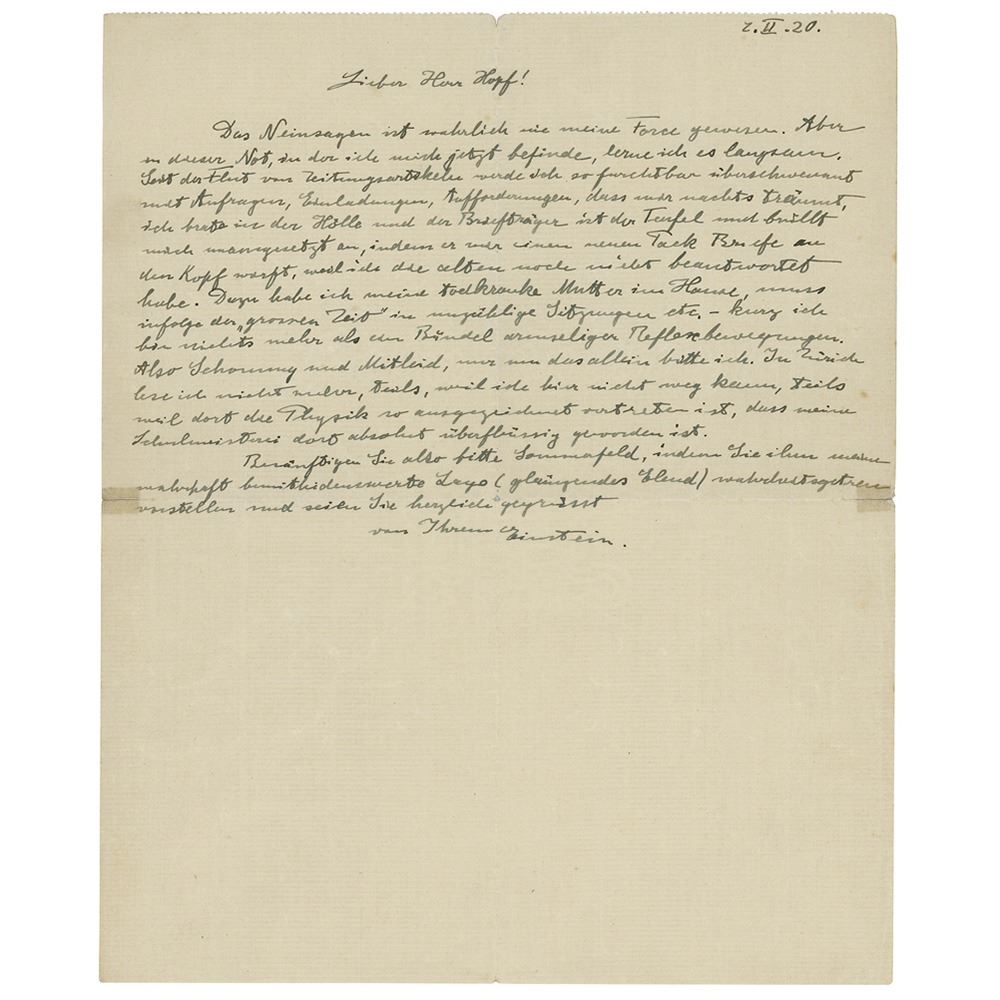 2.II.20.
Lieber Herr Hopf!
Das Neinsagen ist wahrlich nie meine Force gewesen. Aber
in dieser Not, in der ich mich jetzt befinde, lerne ich es langsam.
Seit der Flut von Zeitungsartikeln werde ich so furchtbar überschwemmt
mit Anfragen, Einladungen, Aufforderungen, dass mir nachts träumt,
ich brate in der Hölle und der Briefträger ist der Teufel und brüllt
mich unausgesetzt an, indem er mir einen neuen Pack Briefe an
den Kopf wirft, weil ich die alten noch nicht beantwortet
habe. Dazu habe ich meine todkranke Mutter im Hause, muss
infolge der „grossen Zeit" in unzählige Sitzungen etc. – kurz ich
bin nichts mehr als ein Bündel armseliger Reflexbewegungen.
Also Schonung und Mitleid, nur um das allein bitte ich. In Zürich
lese ich nicht mehr, teils, weil ich hier nicht weg kann, teils
weil dort die Physik so ausgezeichnet vertreten ist, dass meine
Schulmeisterei dort absolut überflüssig geworden ist.
Besänftigen Sie also bitte Sommerfeld, indem Sie ihm meine
wahrhaft bemitleidenswerte Lage (glänzendes Elend) wahrheitsgetreu
vorstellen und seien Sie herzlich gegrüsst
von Ihrem Einstein.